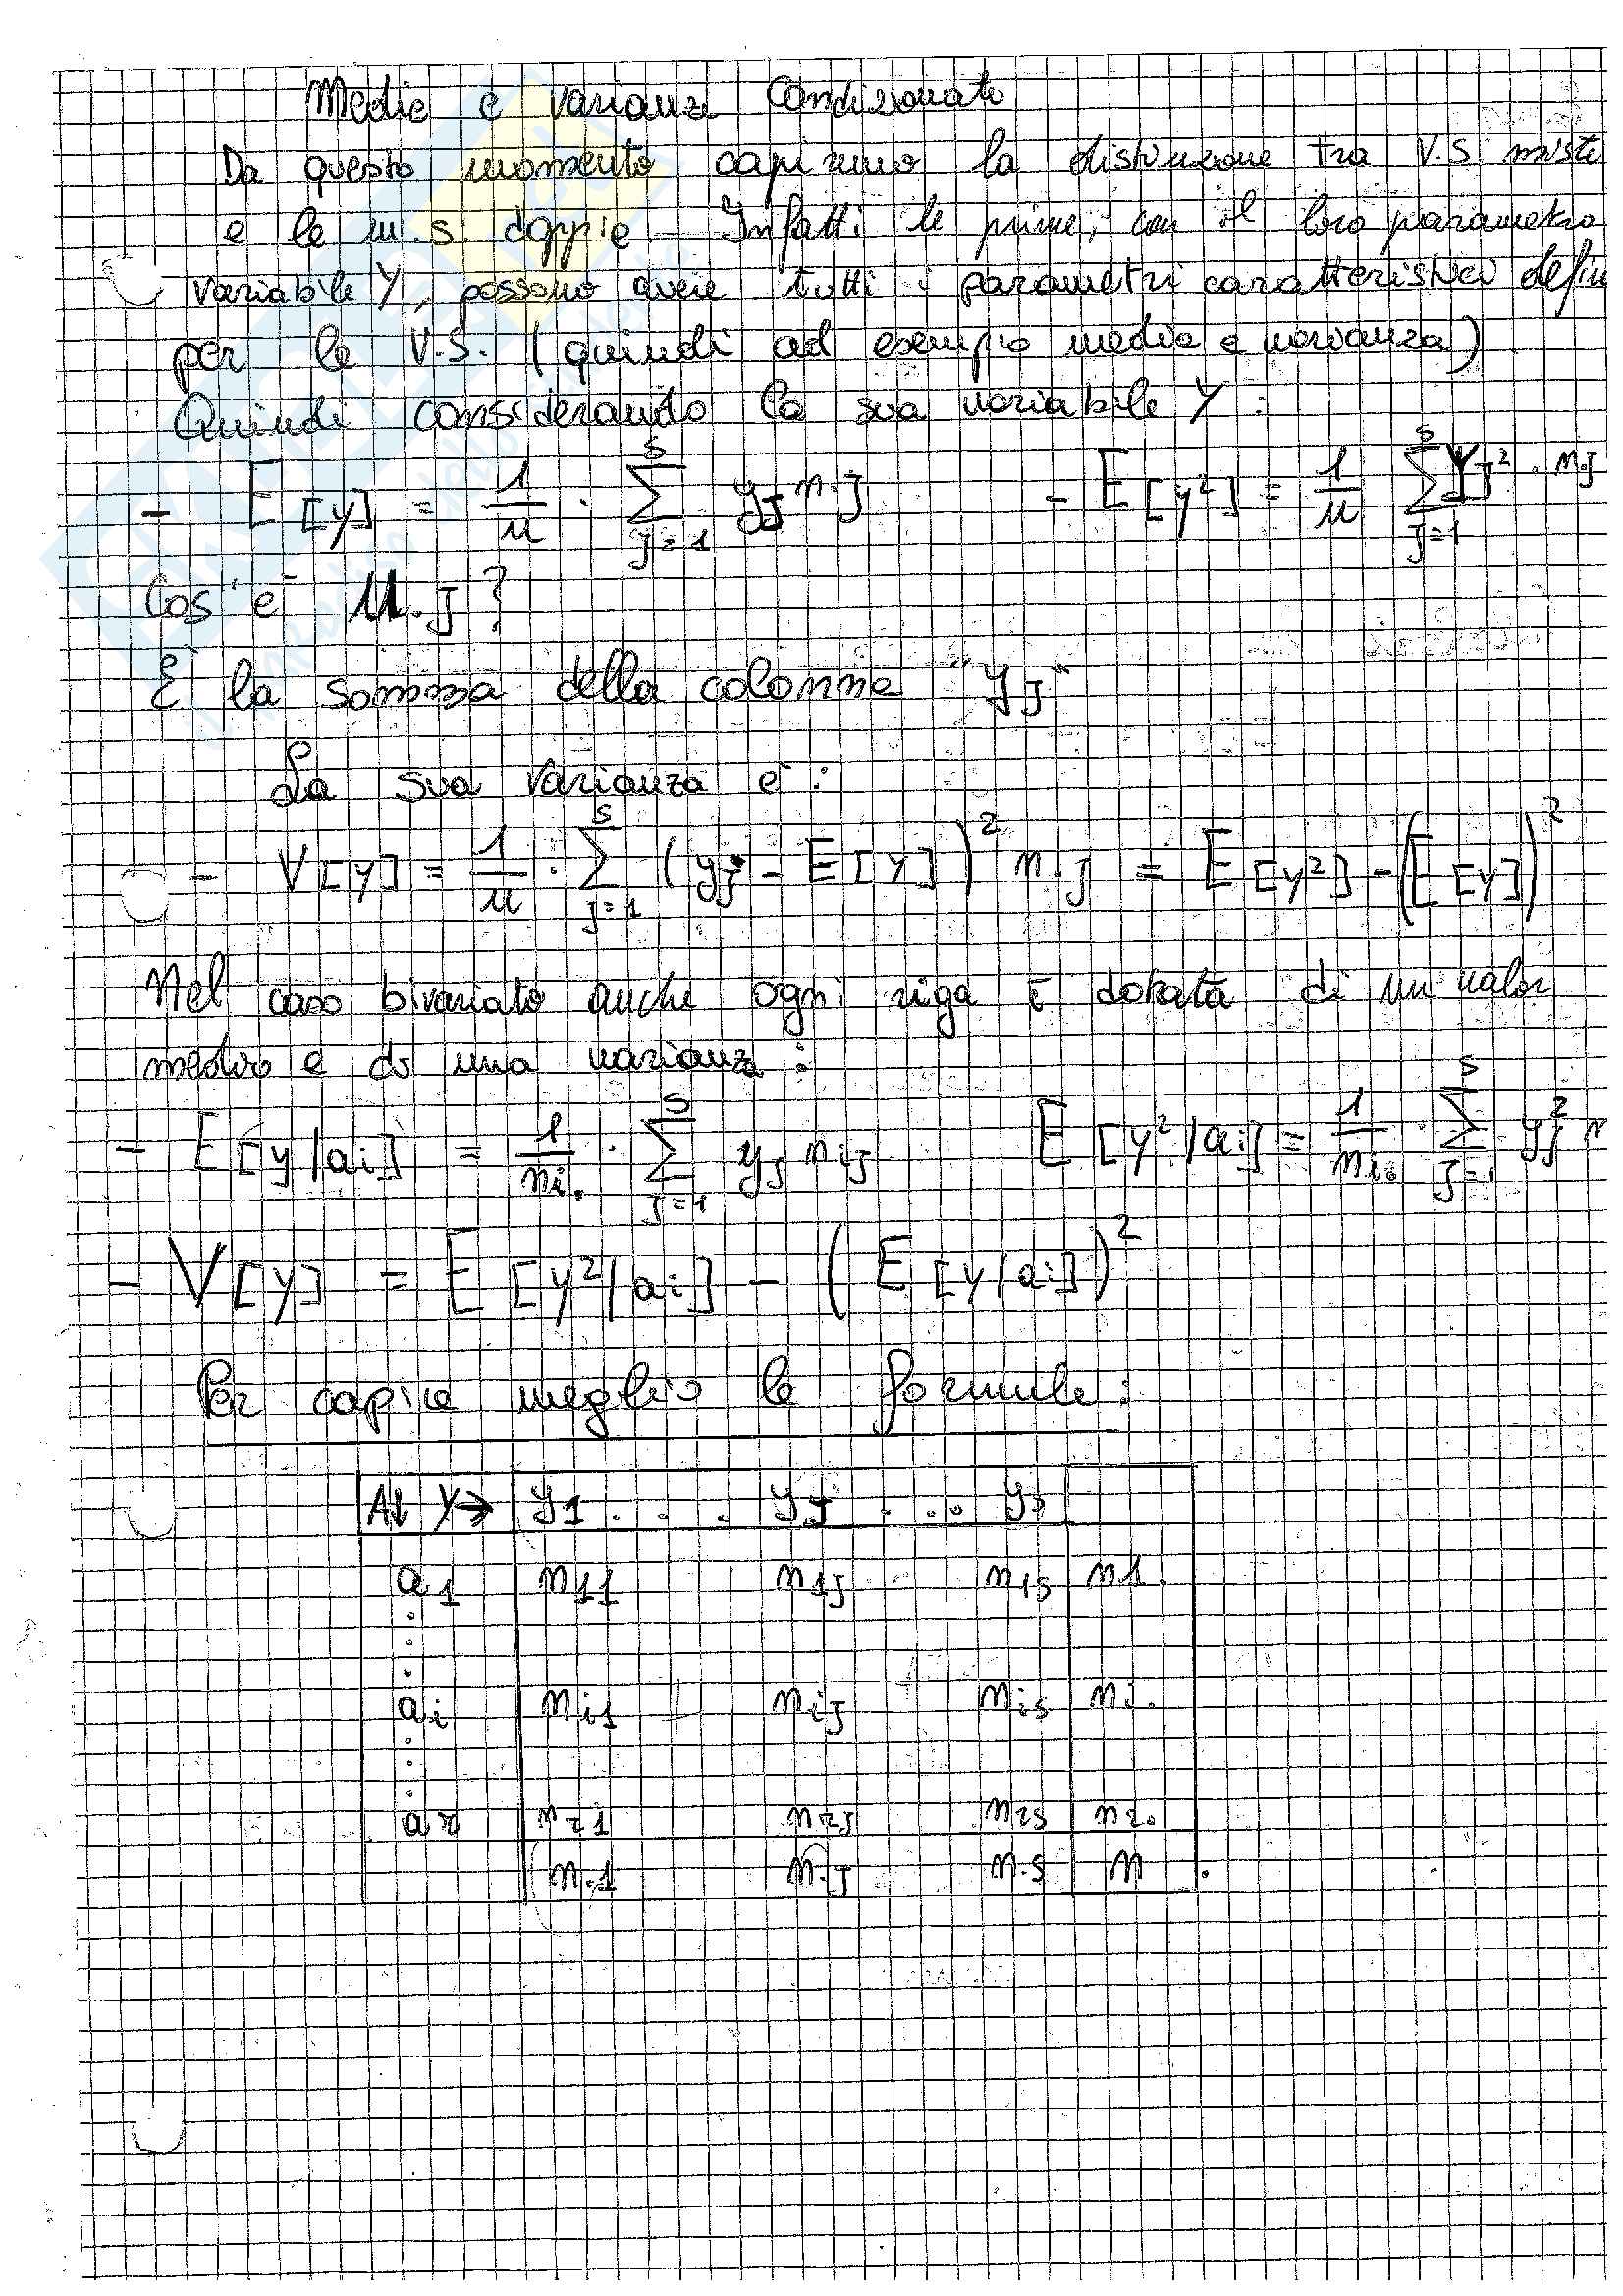 Medie e varianze Condizionate
Da questo momento capiremo la distinzione tra V.S. miste
e le m.s. doppie - Infatti le prime, con il loro parametro
variabile Y, possono avere tutti i parametri caratteristici defin
per le V.S. (quindi ad esempio media e varianza)
Quindi considerando la sua variabile Y :
- E[y] = 1/n · Σ_{J=1}^{s} y_J n.J - E[y²] = 1/n Σ_{J=1}^{s} y_J² · n.J
Cos'è n.J ?
È la somma della colonna "y_J"
La sua varianza è :
- V[y] = 1/n · Σ_{J=1}^{s} (y_J - E[y])² n.J = E[y²] - (E[y])²
Nel caso bivariato anche ogni riga è dotata di un valor
medio e di una varianza :
- E[y/ai] = 1/ni. · Σ_{J=1}^{s} y_J n_iJ E[y²/ai] = 1/ni. · Σ_{J=1}^{s} y_J² n
- V[y] = E[y²/ai] - (E[y/ai])²
Per capire meglio le formule :
A↓ Y→ y1 . . . yJ . . . ys
a1 n11 n1J n1s n1.
ai ni1 niJ nis ni.
ar nr1 nrJ nrs nr.
n.1 n.J n.s n